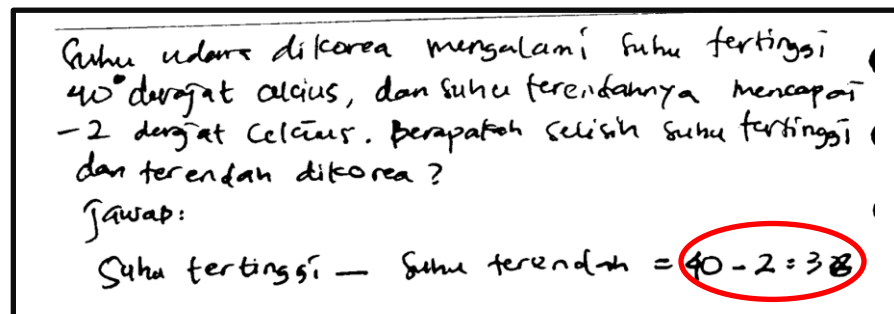 Suhu udara dikorea mengalami suhu tertinggi
40° derajat celcius, dan suhu terendahnya mencapai
-2 derajat Celcius. Berapakah selisih suhu tertinggi
dan terendah dikorea?
Jawab:
Suhu tertinggi — Suhu terendah = 40 - 2 = 38